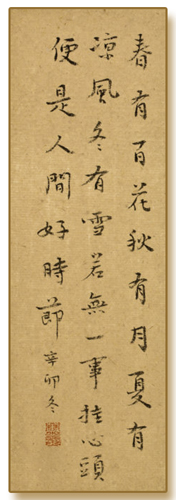 春有百花秋有月夏有
凉風冬有雪若無一事挂心頭
便是人間好時節
辛卯冬